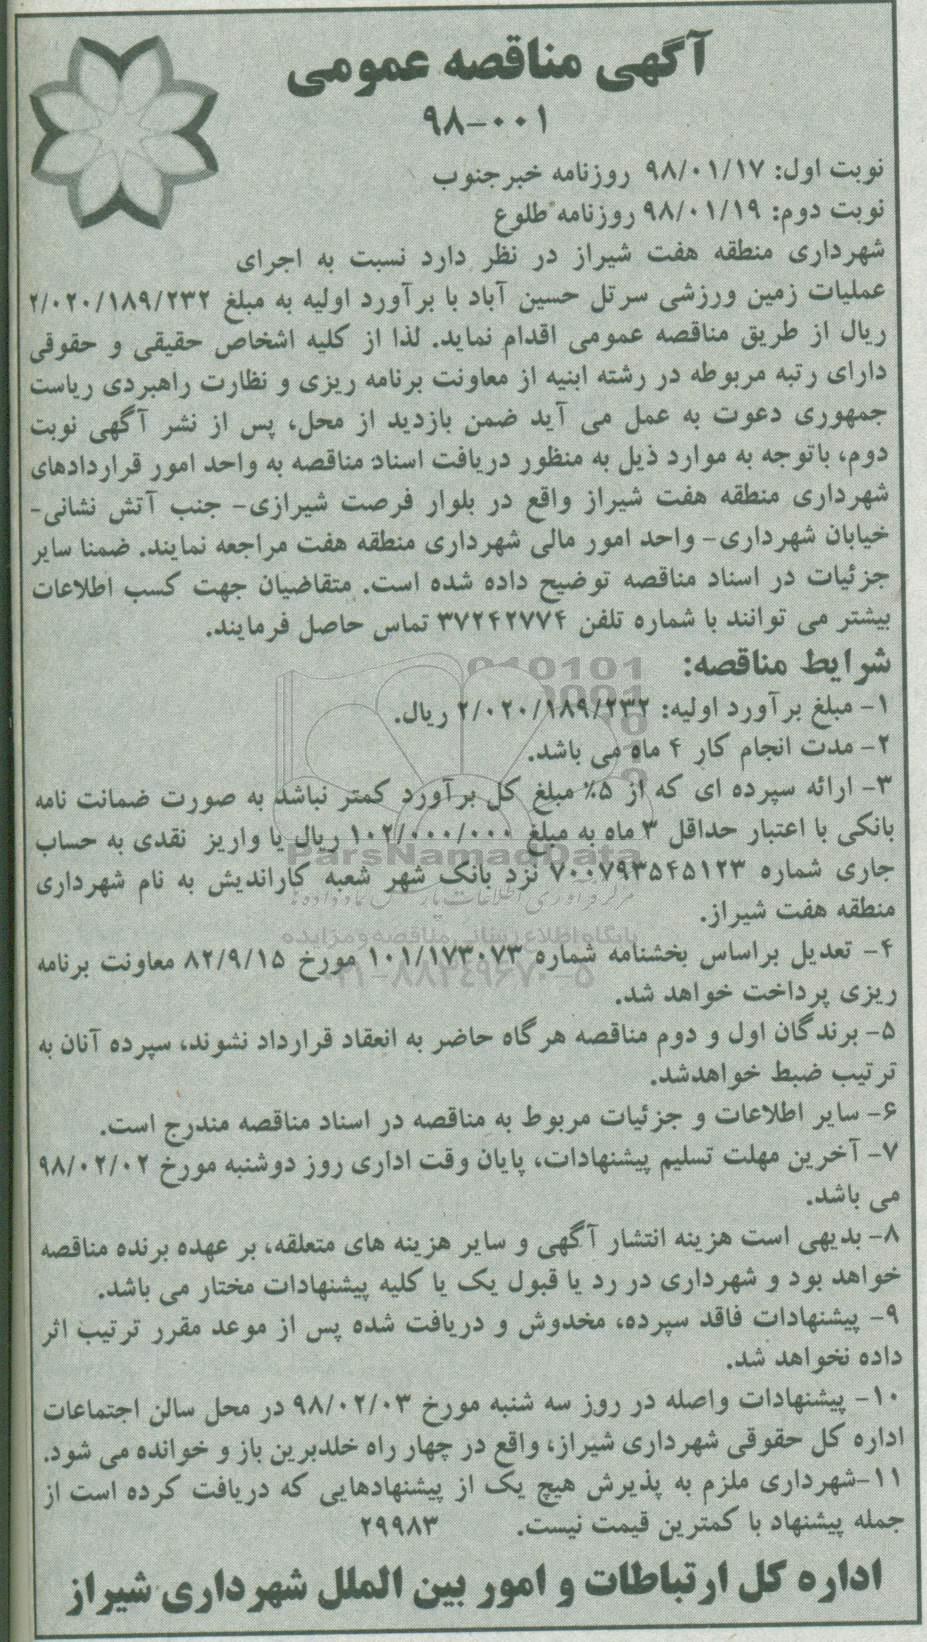 آگهی مناقصه عمومی
۹۸-۰۰۱
نوبت اول: ۹۸/۰۱/۱۷ روزنامه خبرجنوب
نوبت دوم: ۹۸/۰۱/۱۹ روزنامه طلوع
شهرداری منطقه هفت شیراز در نظر دارد نسبت به اجرای
عملیات زمین ورزشی سرتل حسین آباد با برآورد اولیه به مبلغ ۲/۰۲۰/۱۸۹/۲۳۲
ریال از طریق مناقصه عمومی اقدام نماید. لذا از کلیه اشخاص حقیقی و حقوقی
دارای رتبه مربوطه در رشته ابنیه از معاونت برنامه ریزی و نظارت راهبردی ریاست
جمهوری دعوت به عمل می آید ضمن بازدید از محل، پس از نشر آگهی نوبت
دوم، باتوجه به موارد ذیل به منظور دریافت اسناد مناقصه به واحد امور قراردادهای
شهرداری منطقه هفت شیراز واقع در بلوار فرصت شیرازی- جنب آتش نشانی-
خیابان شهرداری- واحد امور مالی شهرداری منطقه هفت مراجعه نمایند. ضمنا سایر
جزئیات در اسناد مناقصه توضیح داده شده است. متقاضیان جهت کسب اطلاعات
بیشتر می توانند با شماره تلفن ۳۷۲۴۲۷۷۴ تماس حاصل فرمایند.
شرایط مناقصه:
۱- مبلغ برآورد اولیه: ۲/۰۲۰/۱۸۹/۲۳۲ ریال.
۲- مدت انجام کار ۴ ماه می باشد.
۳- ارائه سپرده ای که از ۵٪ مبلغ کل برآورد کمتر نباشد به صورت ضمانت نامه
بانکی با اعتبار حداقل ۳ ماه به مبلغ ۱۰۲/۰۰۰/۰۰۰ ریال یا واریز نقدی به حساب
جاری شماره ۷۰۰۷۹۳۵۴۵۱۲۳ نزد بانک شهر شعبه کاراندیش به نام شهرداری
منطقه هفت شیراز.
۴- تعدیل براساس بخشنامه شماره ۱۰۱/۱۷۳۰۷۳ مورخ ۸۲/۹/۱۵ معاونت برنامه
ریزی پرداخت خواهد شد.
۵- برندگان اول و دوم مناقصه هرگاه حاضر به انعقاد قرارداد نشوند، سپرده آنان به
ترتیب ضبط خواهدشد.
۶- سایر اطلاعات و جزئیات مربوط به مناقصه در اسناد مناقصه مندرج است.
۷- آخرین مهلت تسلیم پیشنهادات، پایان وقت اداری روز دوشنبه مورخ ۹۸/۰۲/۰۲
می باشد.
۸- بدیهی است هزینه انتشار آگهی و سایر هزینه های متعلقه، بر عهده برنده مناقصه
خواهد بود و شهرداری در رد یا قبول یک یا کلیه پیشنهادات مختار می باشد.
۹- پیشنهادات فاقد سپرده، مخدوش و دریافت شده پس از موعد مقرر ترتیب اثر
داده نخواهد شد.
۱۰- پیشنهادات واصله در روز سه شنبه مورخ ۹۸/۰۲/۰۳ در محل سالن اجتماعات
اداره کل حقوقی شهرداری شیراز، واقع در چهار راه خلدبرین باز و خوانده می شود.
۱۱-شهرداری ملزم به پذیرش هیچ یک از پیشنهادهایی که دریافت کرده است از
جمله پیشنهاد با کمترین قیمت نیست. ۲۹۹۸۳
اداره کل ارتباطات و امور بین الملل شهرداری شیراز
ParsNamadData
پایگاه اطلاع رسانی مناقصه و مزایده
۰۲۱-۸۸۳۴۹۶۷۰-۵